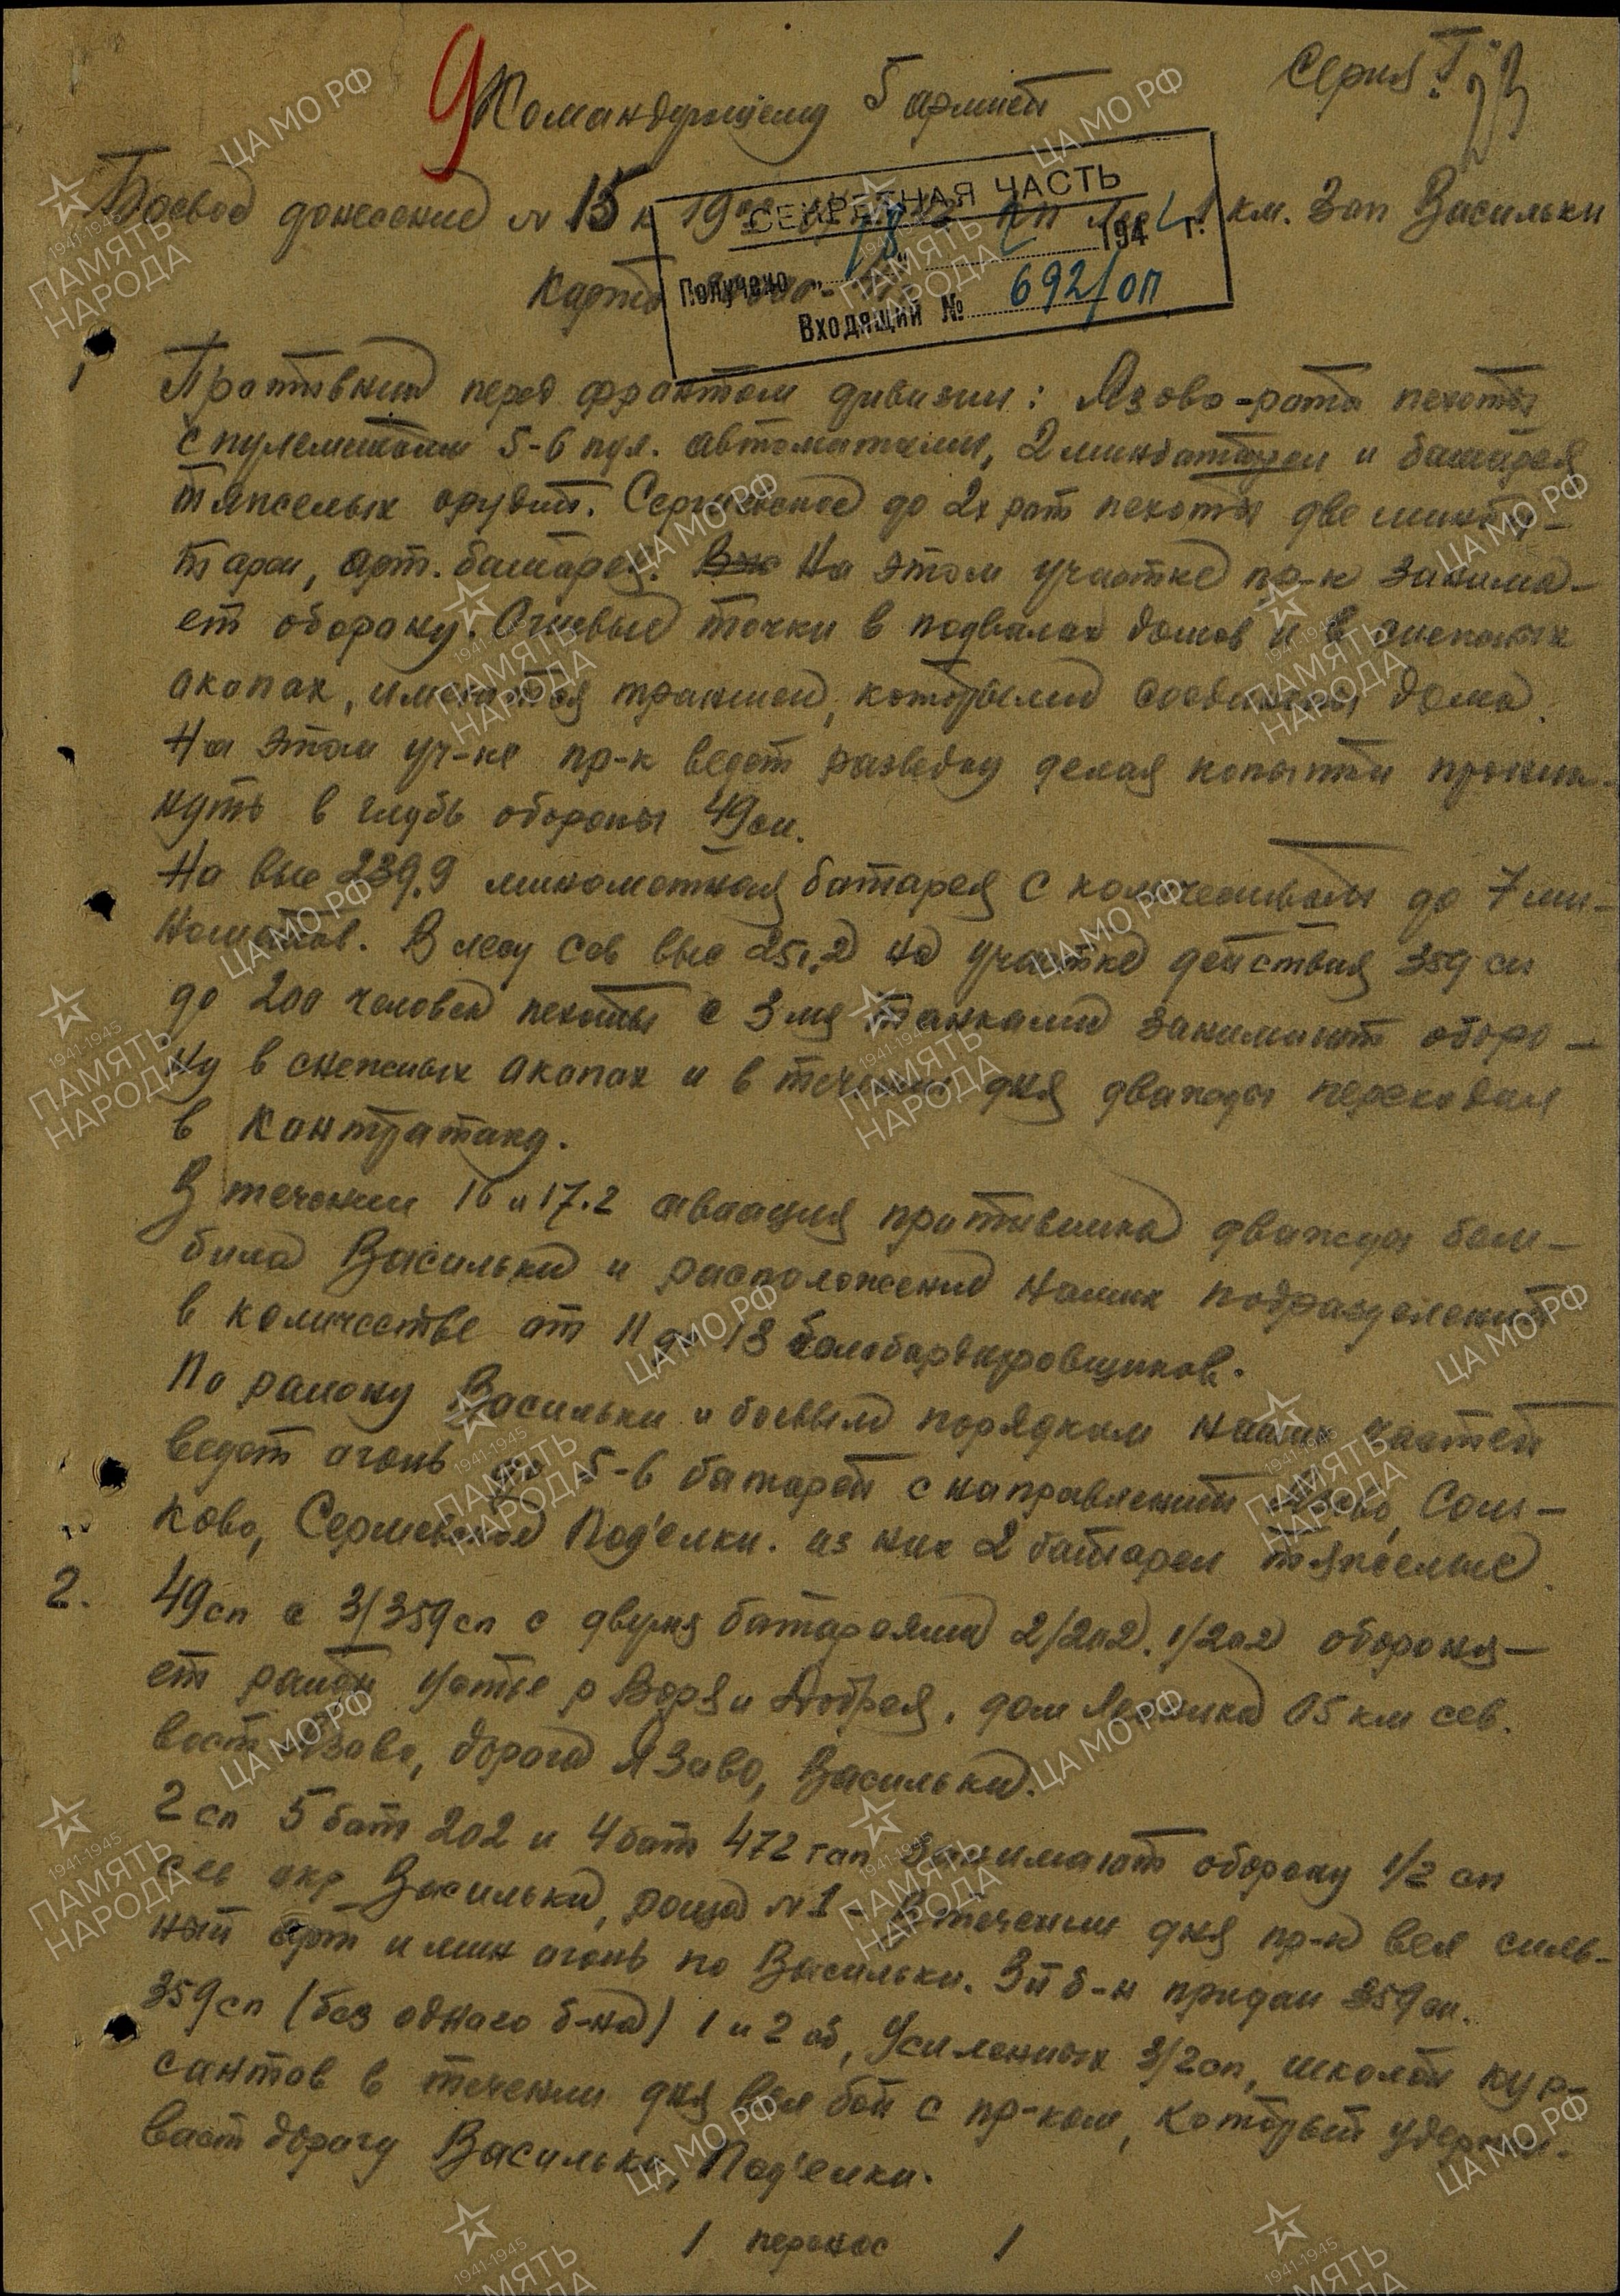 Серия "Г"
9 Командующему 5 армией
23
Боевое донесение № 15 к 19 КП лес 1 км. Зап Васильки
СЕКРЕТНАЯ ЧАСТЬ
Получено "18" 2 1942 г.
Входящий № 692/оп
Карта
1 Противник перед фронтом дивизии: Язово-рота пехоты
с пулеметами 5-6 пул. автоматами, 2 минбатареи и батарея
тяжелых орудий. Сергиевское до 2х рот пехоты две минба-
тареи, арт. батарея. На этом участке пр-к занима-
ет оборону. Огневые точки в подвалах домов и в снежных
окопах, имеются траншеи, которыми соединены дома.
На этом уч-ке пр-к ведет разведку делая попытки проник-
нуть в глубь обороны 49сп.
На выс 239.9 минометная батарея с количеством до 7 ми-
нометов. В лесу сев выс 251,2 на участке действия 359 сп
до 200 человек пехоты с 3мя танками занимают оборо-
ну в снежных окопах и в течении дня дважды переходил
в контратаку.
В течении 16 и 17.2 авиация противника дважды бом-
била Васильки и расположение наших подразделений
в количестве от 11 до 13 бомбардировщиков.
По району Васильки и боевым порядкам наших частей
ведет огонь до 5-6 батарей с направлений Язово,
ково, Сергиевское Под'елки. из них 2 батареи тяжелые.
2. 49сп с 3/359сп с двумя батареями 2/202. 1/202 обороня-
ет район Устье р Воря и Добрея, дом Лесника 05 км сев.
вост Язово, дорога Язово, Васильки.
2 сп 5 бат 202 и 4 бат 472 гап занимают оборону 1/2 сп
окр Васильки, роща №1 - В течении дня пр-к вел силь-
ный арт и мин огонь по Васильки. 3й б-н придан 359сп.
359сп (без одного б-на) 1 и 2 сб, усиленных 3/2сп, школой кур-
сантов в течении дня вел бой с пр-ком, который удержи-
вает дорогу Васильки, Под'елки.
1 перенос 1
ЦА МО РФ
1941-1945
ПАМЯТЬ
НАРОДА